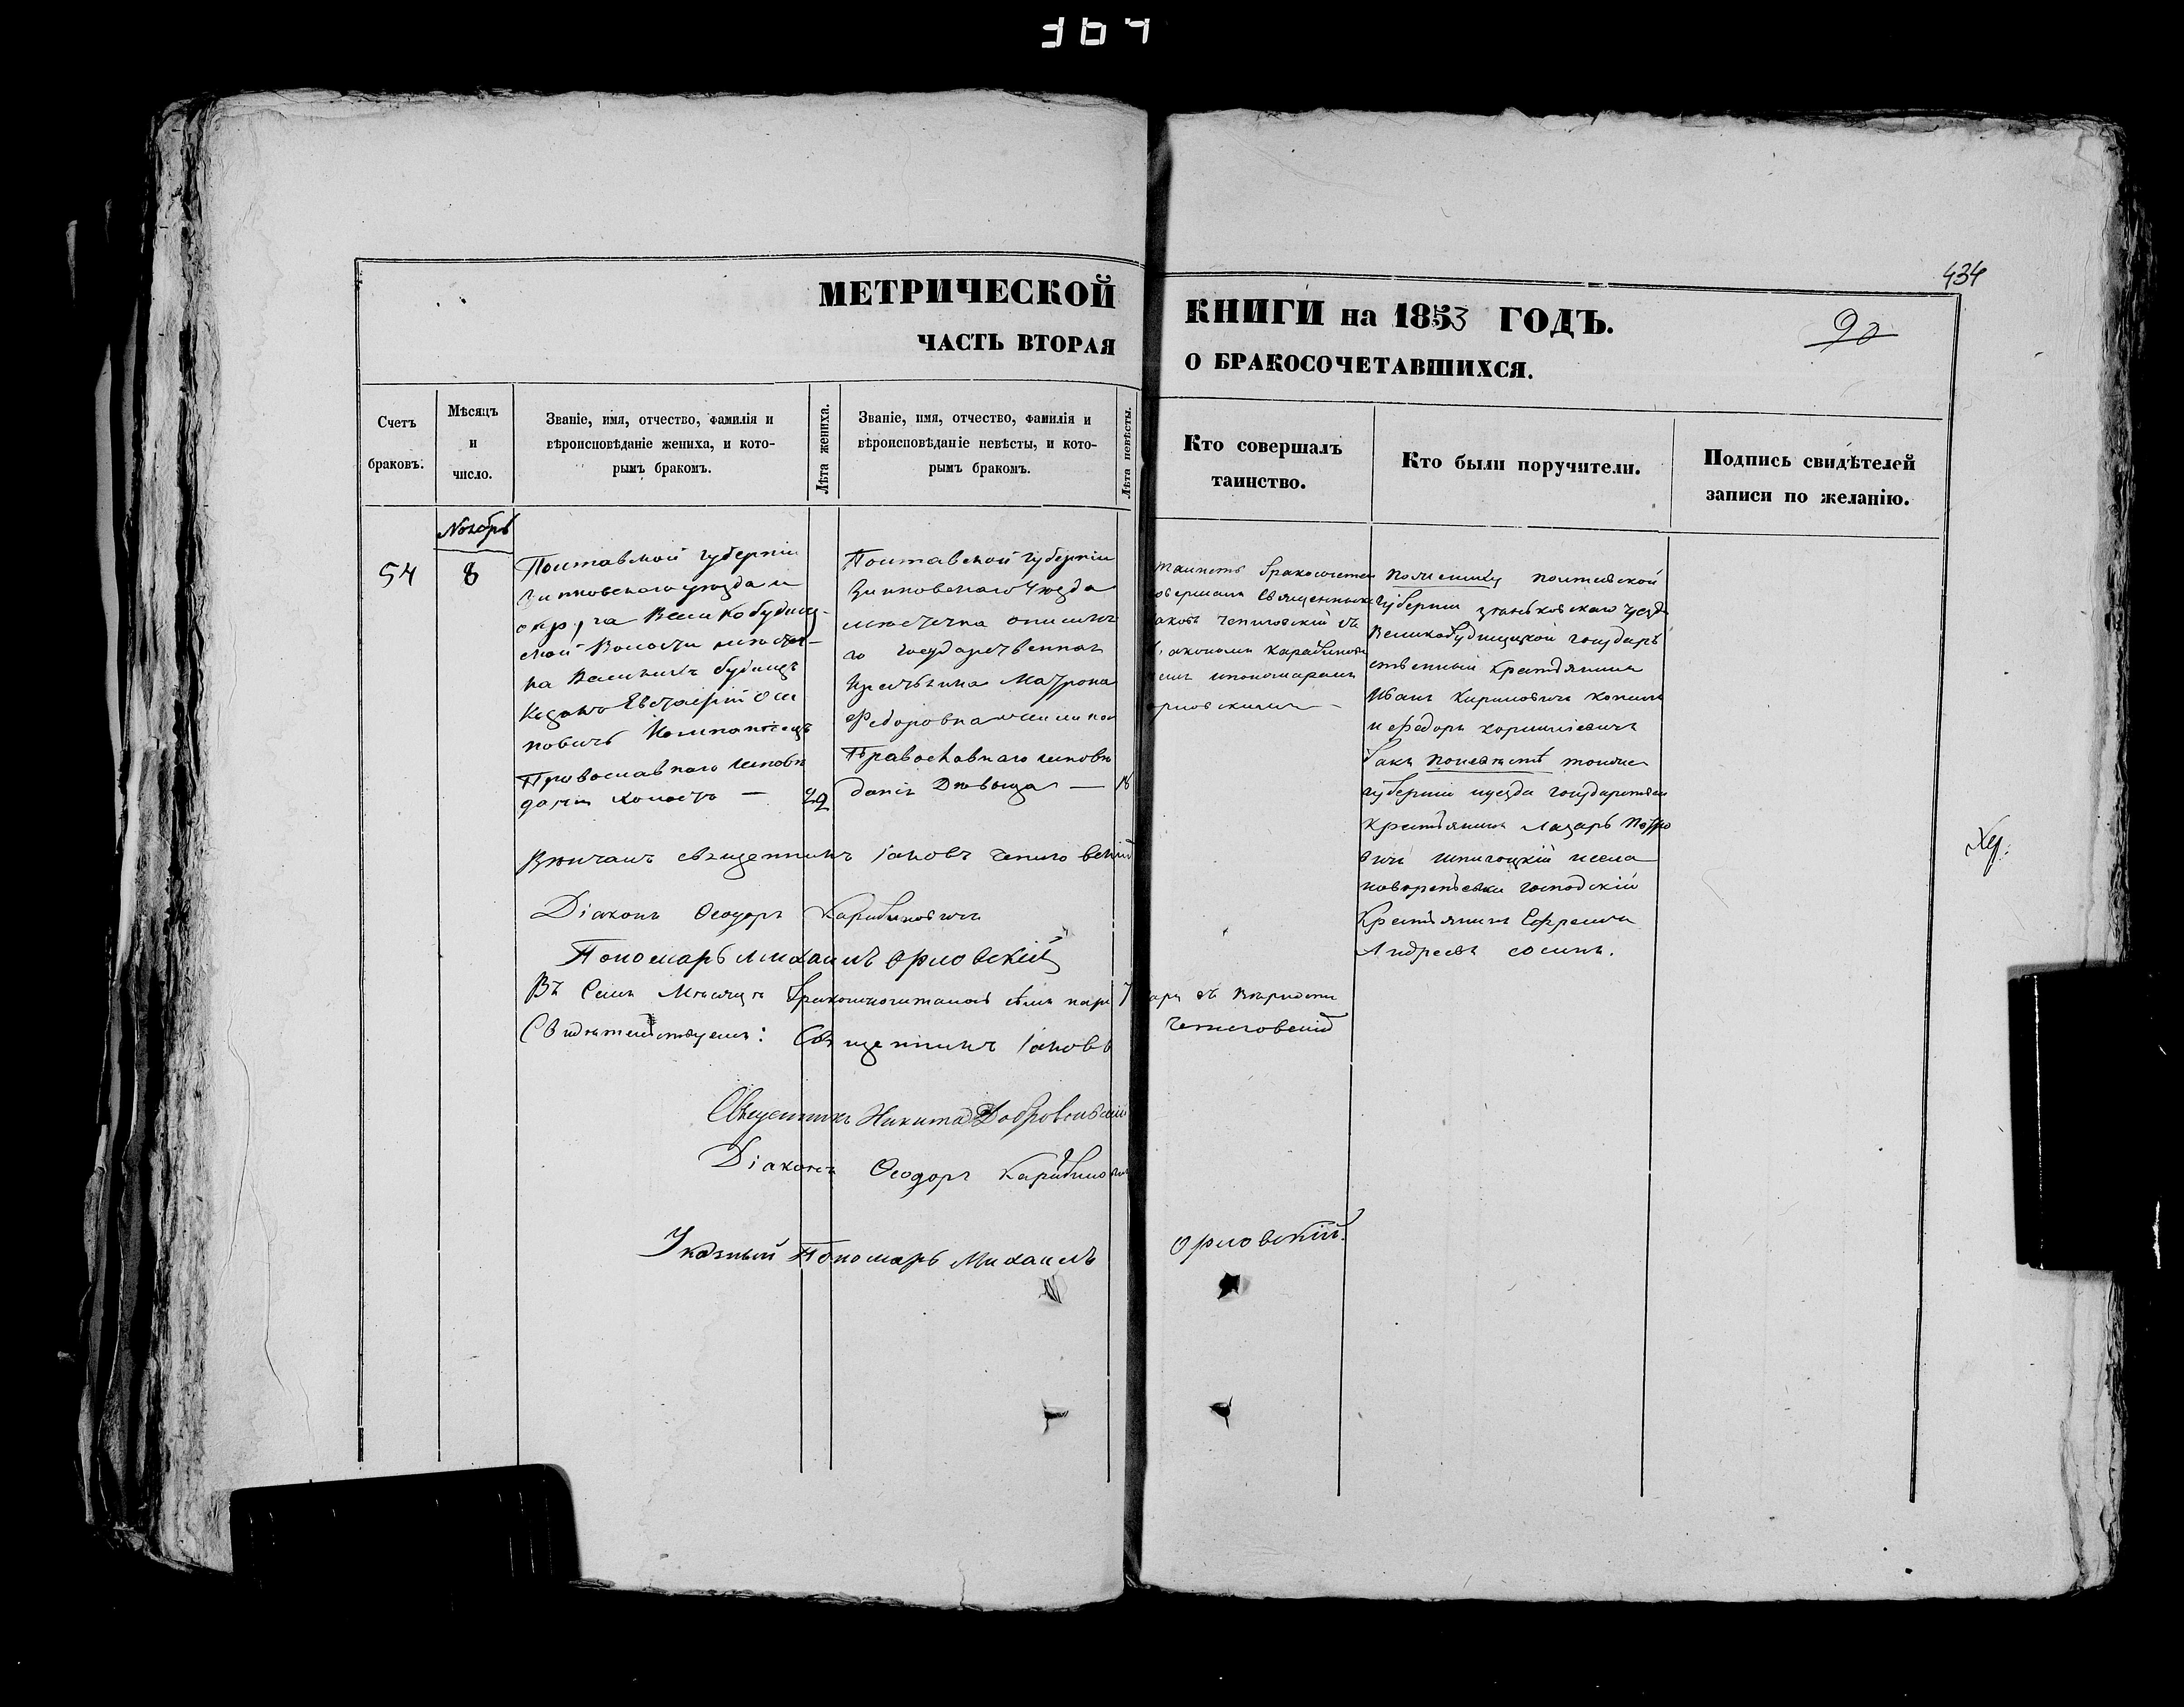 364
434
МЕТРИЧЕСКОЙ КНИГИ на 1853 ГОДЪ.
90
ЧАСТЬ ВТОРАЯ О БРАКОСОЧЕТАВШИХСЯ.
Счетъ браковъ.
Мѣсяцъ и число.
Званіе, имя, отчество, фамилія и
вѣроисповѣданіе жениха, и кото-
рымъ бракомъ.
Лѣта жениха.
Званіе, имя, отчество, фамилія и
вѣроисповѣданіе невѣсты, и кото-
рымъ бракомъ.
Лѣта невѣсты.
Кто совершалъ
таинство.
Кто были поручители.
Подпись свидѣтелей
записи по желанію.
Ноябрь
54
8
Полтавской губерніи
Зинковского уезда и
округа Великобудищ-
ской Волости местеч-
ка Великихъ будищъ
Козакъ Евстафій
Православнаго исповѣ
данія холостъ —
22
Полтавской губерніи
Зинковскаго уезда
местечка
го государственная
Матрона
Федоровна
Православнаго исповѣ
данія Девица —
18
Таинство бракосочетан
овершалъ Священникъ
аковъ Чепиговскій съ
іакономъ Карабиновичемъ
пономаремъ
орловскимъ —
По женику полтавской
губерніи зеньковскаго уезда
Великобудищской государ
ственный крестьянинъ
Иванъ Кириловичъ
и Федоръ
по невѣстѣ тойже
губерніи и уезда государствен
крестьянинъ Лазарь Петро
вичъ и села
господскій
Крестьянинъ Ефремъ
Андреевъ
Хер.
Вѣнчалъ священникъ Іаковъ Чепиговскій
Діаконъ Ѳеодоръ Карабиновичъ
Пономарь Михаилъ орловскій
Въ Семъ Месяце
Свидетельствуемъ: Священникъ Іаковъ Чепиговскій
Священникъ Никита Добровольскій
Діаконъ Ѳеодоръ Карабиновичъ
Указный Пономарь Михаилъ орловскій.